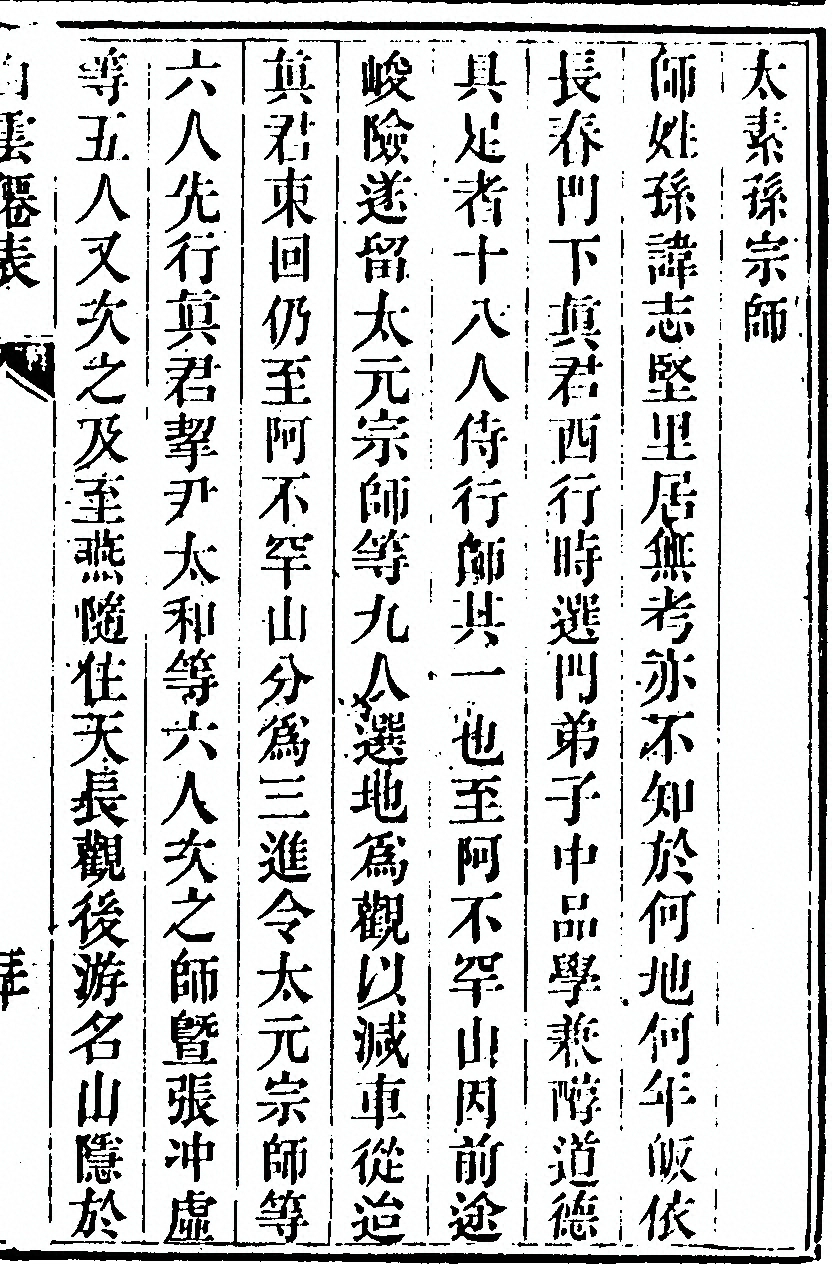 太素孫宗師
師姓孫諱志堅里居無考亦不知於何地何年皈依
長春門下眞君西行時選門弟子中品學兼醇道德
具足者十八人侍行師其一也至阿不罕山因前途
峻險遂留太元宗師等九人選地爲觀以減車從迨
眞君東回仍至阿不罕山分爲三進令太元宗師等
六人先行眞君挈尹太和等六人次之師曁張冲虛
等五人又次之及至燕隨住天長觀後游名山隱於
白雲僊表